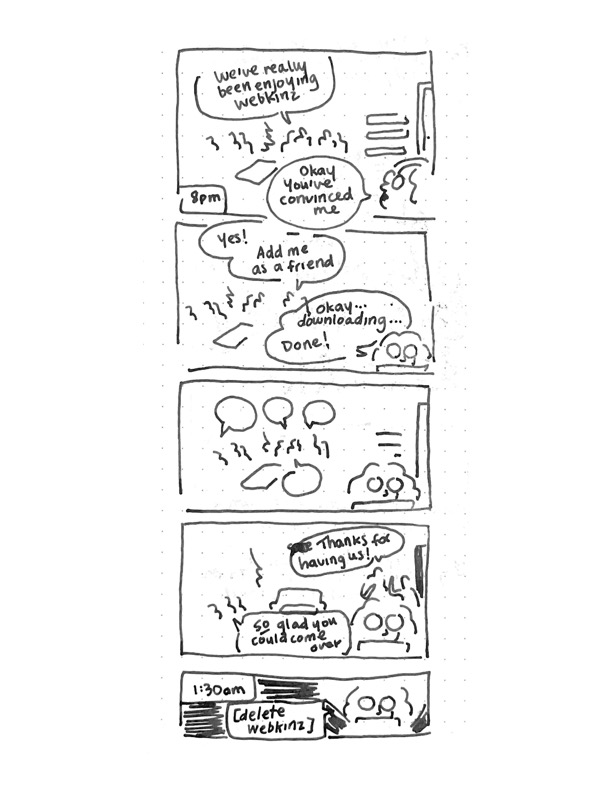 We've really
been enjoying
webkinz
Okay
you've
convinced
me
8pm
Yes!
Add me
as a friend
Okay...
downloading...
Done!
Thanks for
having us!
So glad you
could come
over
1:30am
[delete
webkinz]